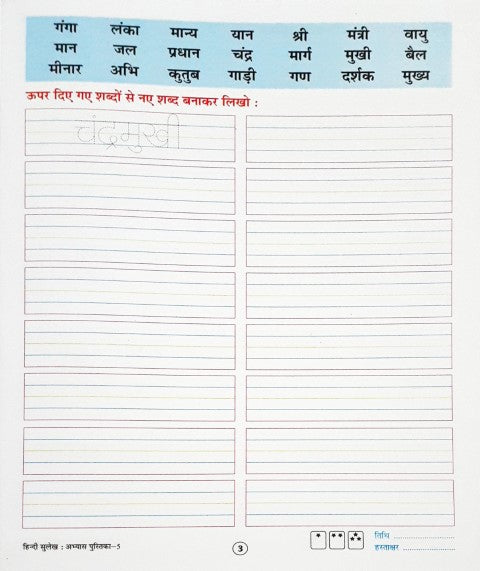 गंगा लंका मान्य यान श्री मंत्री वायु
मान जल प्रधान चंद्र मार्ग मुखी बैल
मीनार अभि कुतुब गाड़ी गण दर्शक मुख्य
ऊपर दिए गए शब्दों से नए शब्द बनाकर लिखो :
चंद्रमुखी
हिन्दी सुलेख : अभ्यास पुस्तिका–5
3
तिथि ....................
हस्ताक्षर ....................